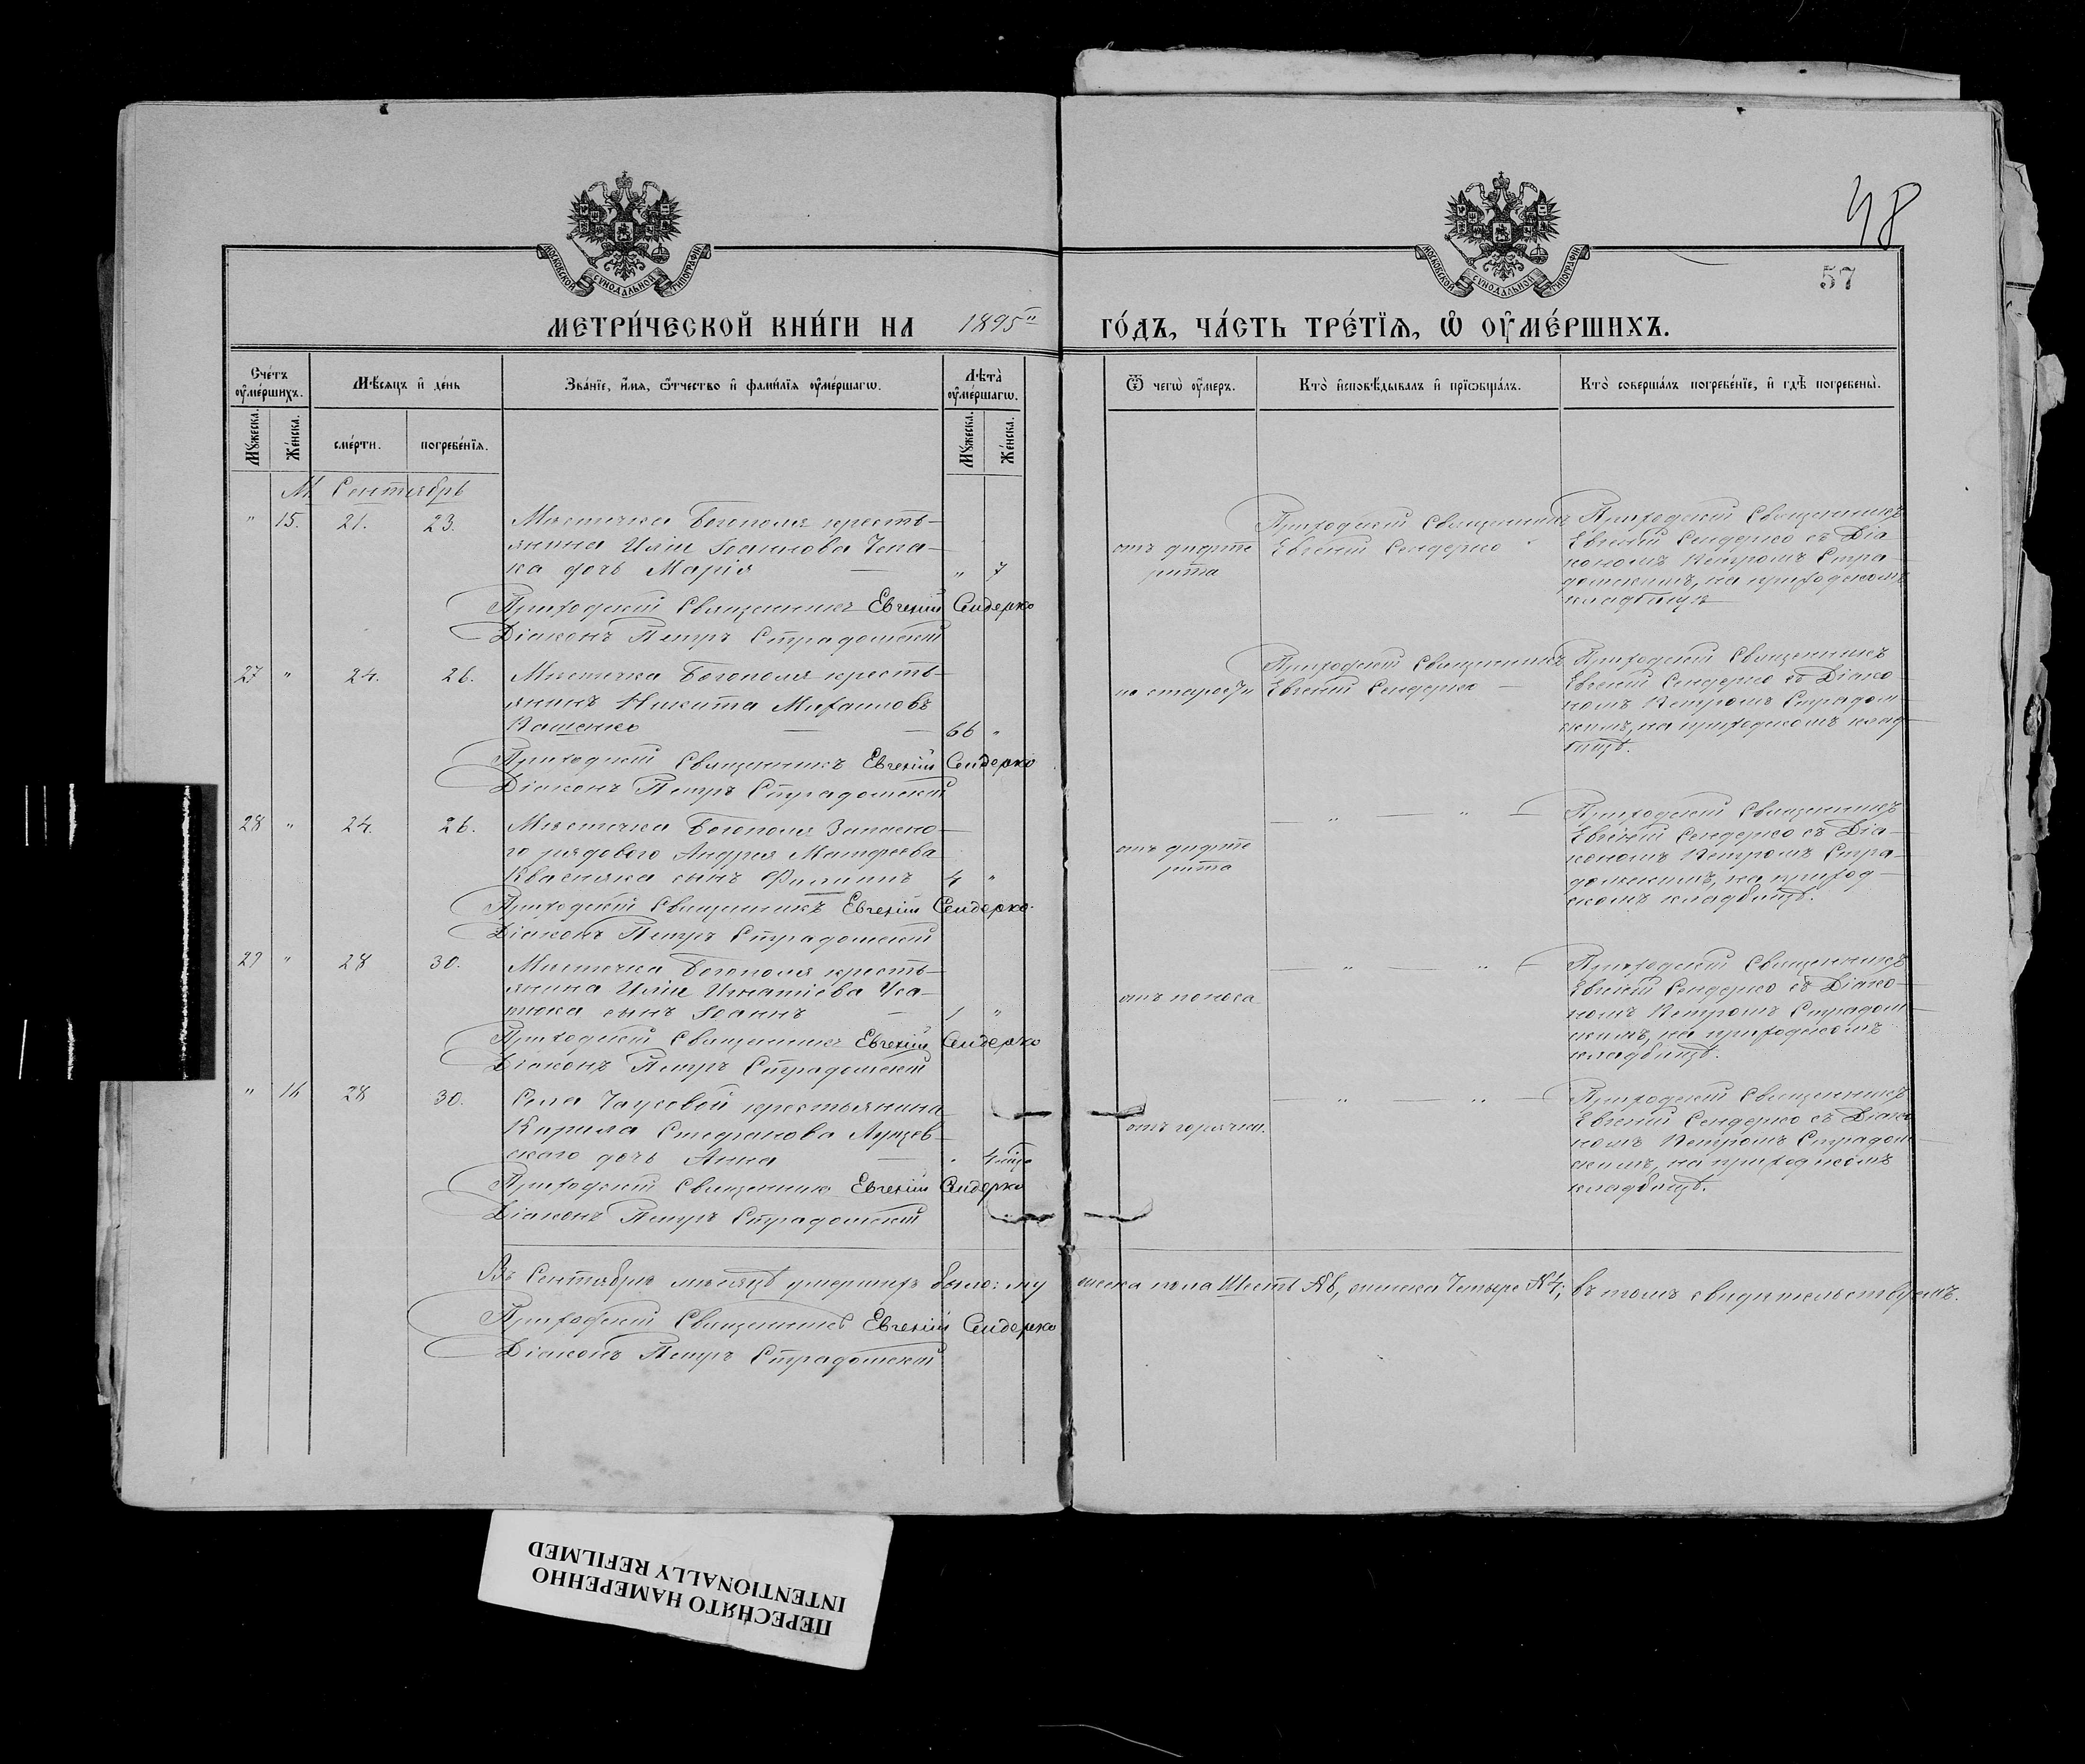 48
57
МОСКОВСКОЙ СѴНОДАЛЬНОЙ ТИПОГРАФІИ
МОСКОВСКОЙ СѴНОДАЛЬНОЙ ТИПОГРАФІИ
МЕТРИ́ЧЕСКОЙ КНИ́ГИ НА 1895 ГО́ДЪ, ЧА́СТЬ ТРЕ́ТІѦ, Ѡ ОУМЕ́РШИХЪ.
Сче́тъ оуме́ршихъ.
Мѣсяцъ и де́нь
Зва́нїе, и́мя, ѿтчество и фами́лїя оуме́ршагѡ.
Лѣта̀ оуме́ршагѡ.
Ѿ чегѡ̀ оу́меръ.
Кто̀ исповѣ́дывалъ и прїѡбща́лъ.
Кто̀ соверша́лъ погребе́нїе, и гдѣ̀ погребены̀.
Мꙋ́жеска.
Же́нска.
сме́рти.
погребе́нїя.
Мꙋ́жеска.
Же́нска.
М. Сентябрь
" 15. 21. 23.
Мѣстечка Богополя кресть-
янина Иліи Іоаннова Чепа-
ка дочь Марія — " 7
Приходскій Священникъ Евгеній Сендерко
Діаконъ Петръ Страдомскій
отъ дифте
рита
Приходскій Священникъ
Евгеній Сендерко
Приходскій Священникъ
Евгеній Сендерко съ Діа
кономъ Петромъ Стра-
домскимъ, на приходскомъ
кладбищѣ
27 " 24. 26.
Мѣстечка Богополя кресть-
янинъ Никита Михаиловъ
Пащенко — — 66 "
Приходскій Священникъ Евгеній Сендерко
Діаконъ Петръ Страдомскій
по старости
Приходскій Священникъ
Евгеній Сендерко —
Приходскій Священникъ
Евгеній Сендерко съ Діако-
номъ Петромъ Страдом-
скимъ, на приходскомъ клад-
бищѣ.
28 " 24. 26.
Мѣстечка Богополя Запасно-
го рядового Андрея Матфеева
Квасняка сынъ Филиппъ 4 "
Приходскій Священникъ Евгеній Сендерко
Діаконъ Петръ Страдомскій
отъ дифте
рита
— " — " —
Приходскій Священникъ
Евгеній Сендерко съ Діа-
кономъ Петромъ Стра-
домскимъ, на приход-
скомъ кладбищѣ.
29 " 28 30.
Мѣстечка Богополя кресть-
янина Иліи Игнатіева Уса-
тюка сынъ Іоаннъ — 1 "
Приходскій Священникъ Евгеній Сендерко
Діаконъ Петръ Страдомскій
отъ поноса
— " — " —
Приходскій Священникъ
Евгеній Сендерко съ Діако-
номъ Петромъ Страдом-
скимъ, на приходскомъ
кладбищѣ.
" 16 28 30.
Села Чаусовой крестьянина
Кирила Стефанова
ского дочь Анна — "
Приходскій Священникъ Евгеній Сендерко
Діаконъ Петръ Страдомскій
отъ горячки.
— " — " —
Приходскій Священникъ
Евгеній Сендерко съ Діако-
номъ Петромъ Страдом-
скимъ, на приходскомъ
кладбищѣ.
Въ Сентябрѣ мѣсяцѣ умершихъ было: му жеска пола Шесть № 6, женска Четыре № 4; въ томъ свидѣтельствуемъ.
Приходскій Священникъ Евгеній Сендерко
Діаконъ Петръ Страдомскій
ПЕРЕСНЯТО НАМЕРЕННО
INTENTIONALLY REFILMED